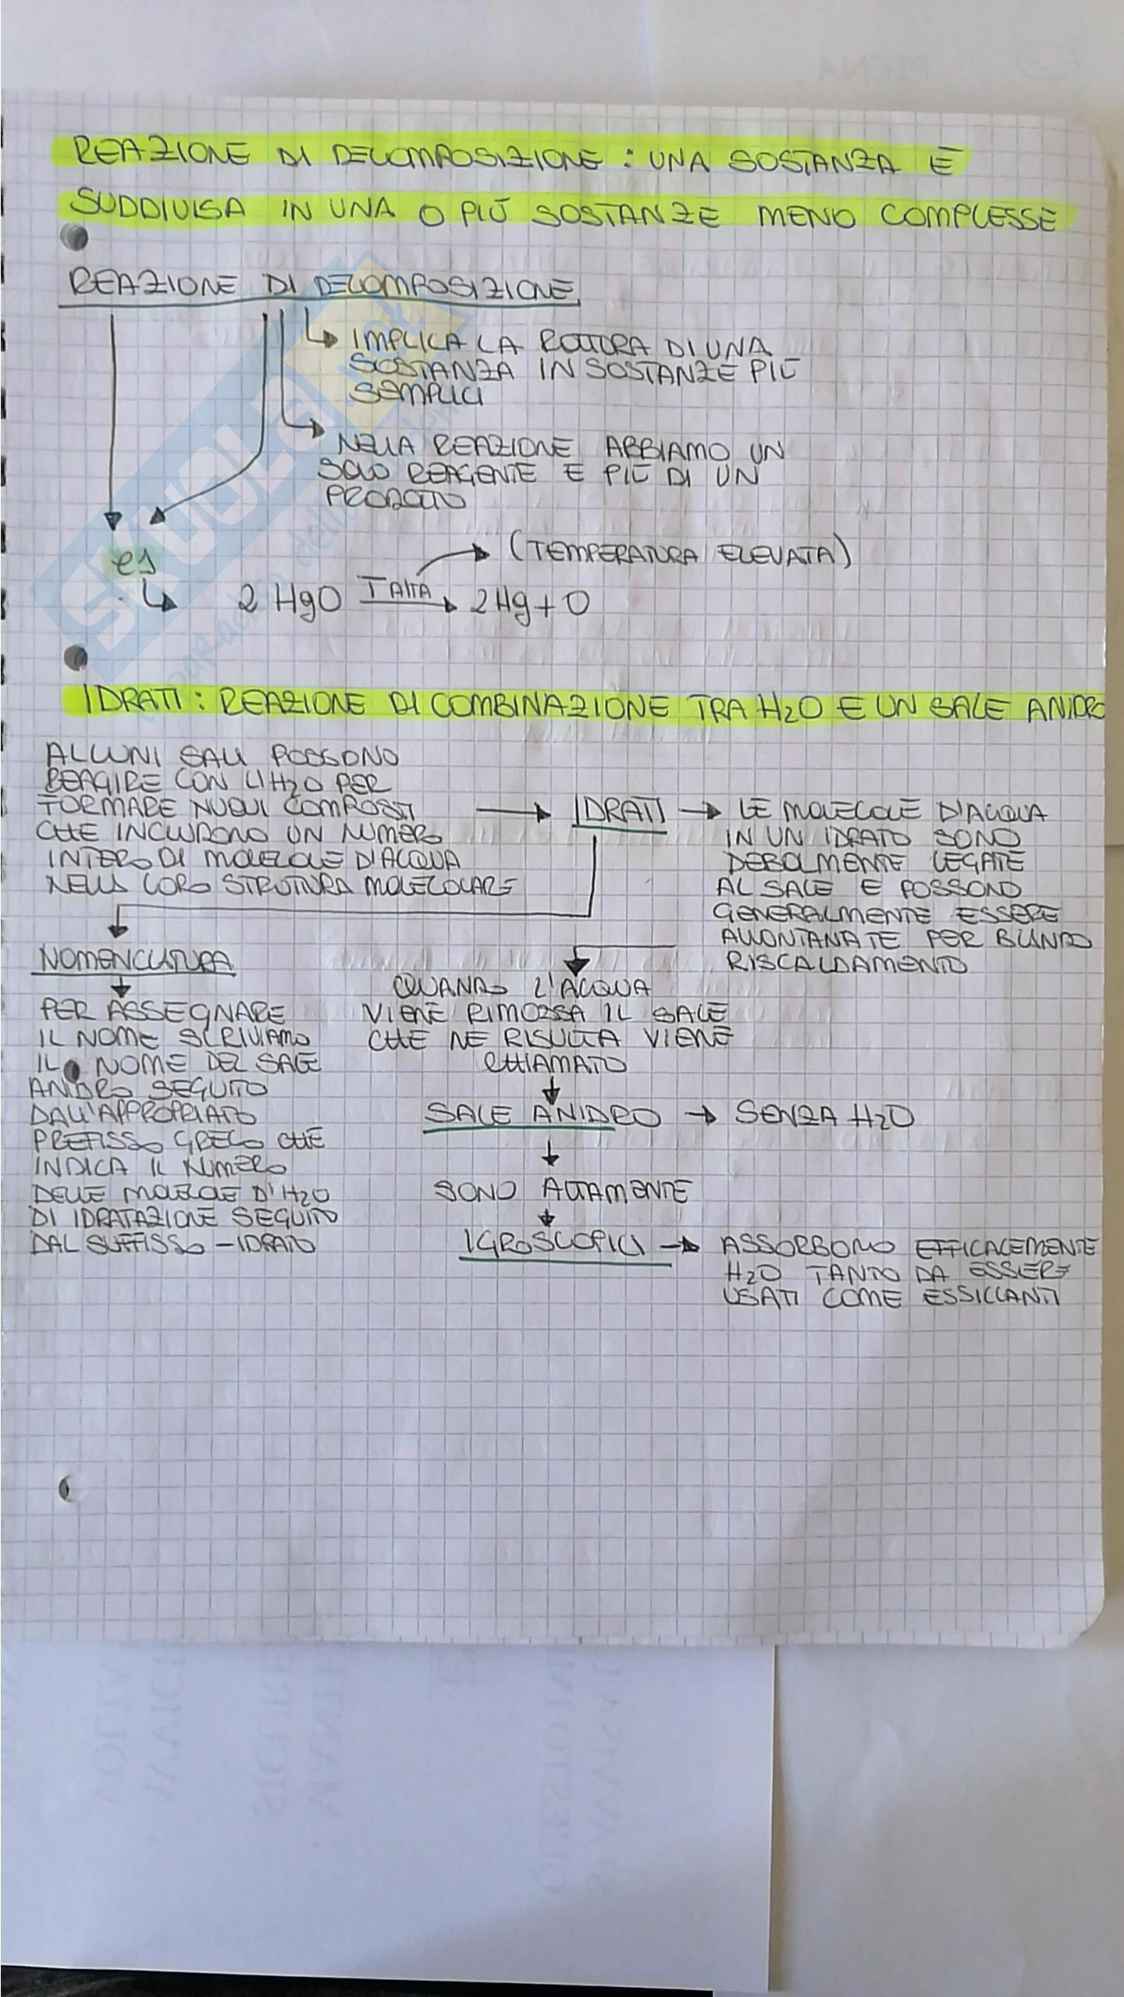 REAZIONE DI DECOMPOSIZIONE : UNA SOSTANZA È
SUDDIVISA IN UNA O PIÙ SOSTANZE MENO COMPLESSE
REAZIONE DI DECOMPOSIZIONE
IMPLICA LA ROTTURA DI UNA
SOSTANZA IN SOSTANZE PIÙ
SEMPLICI
NELLA REAZIONE ABBIAMO UN
SOLO REAGENTE E PIÙ DI UN
PRODOTTO
es
(TEMPERATURA ELEVATA)
2 HgO T ALTA 2Hg + O
IDRATI : REAZIONE DI COMBINAZIONE TRA H2O E UN SALE ANIDRO
ALCUNI SALI POSSONO
REAGIRE CON L'H2O PER
FORMARE NUOVI COMPOSTI
CHE INCLUDONO UN NUMERO
INTERO DI MOLECOLE D'ACQUA
NELLA LORO STRUTTURA MOLECOLARE
IDRATI
LE MOLECOLE D'ACQUA
IN UN IDRATO SONO
DEBOLMENTE LEGATE
AL SALE E POSSONO
GENERALMENTE ESSERE
ALLONTANATE PER BLANDO
RISCALDAMENTO
NOMENCLATURA
PER ASSEGNARE
IL NOME SCRIVIAMO
IL NOME DEL SALE
ANIDRO SEGUITO
DALL'APPROPRIATO
PREFISSO GRECO CHE
INDICA IL NUMERO
DELLE MOLECOLE D'H2O
DI IDRATAZIONE SEGUITO
DAL SUFFISSO -IDRATO
QUANDO L'ACQUA
VIENE RIMOSSA IL SALE
CHE NE RISULTA VIENE
CHIAMATO
SALE ANIDRO → SENZA H2O
SONO ALTAMENTE
IGROSCOPICI → ASSORBONO EFFICACEMENTE
H2O TANTO DA ESSERE
USATI COME ESSICCANTI